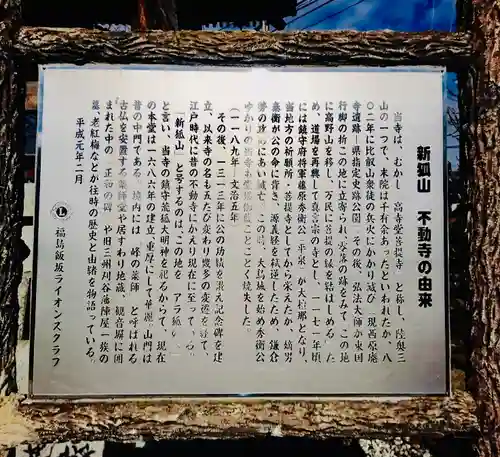 新狐山　不動寺の由来
当寺は、むかし　高寺堂菩提寺　と称し、陸奥三
山の一つで、末院は千有余あったといわれたが、八
〇二年に比叡山衆徒の兵火にかかり滅び（現西原廃
寺遺跡－県指定史跡公園）その後、弘法大師が東国
行脚の折この地に立寄られ、没落の跡をみて、この地
に高野山を移し、万民に菩提の縁を結ばしめる　ため、
道場を再興して真言宗の寺とし、一一七一年頃
には鎮守府将軍藤原秀衡公（平泉）が大檀那となり、
当地方の祈願所・菩提寺としてから栄えたが、嫡男
泰衡が公の命に背き、源義経を弑逆したため、鎌倉
勢の攻略にあい滅亡。この時、大鳥城を始め秀衡公
ゆかりの当寺も
ことごとく焼失した。
（一一八九年－文治五年）
その後、一三一三年に公の功績を讃え記念碑を建
立、以来寺の名も五たび変わり幾多の変遷を経て、
江戸時代に昔の不動寺にかえり現在に至って
「新狐山」と号するのは、この地を　アラ
と言い、当寺の鎮守荒狐大明神を祀るからで、現在
の本堂は一六八六年の建立、重厚にして華麗。山門は
昔の中門である。境内には　峰の薬師　と呼ばれる
古仏を安置する薬師堂や居すわり地蔵、観音屏に囲
まれた中の　正和の碑　や旧三州刈谷藩陣屋一族の
墓、老紅梅などが往時の歴史と由緒を物語っている。
平成元年二月
福島飯坂ライオンズクラブ